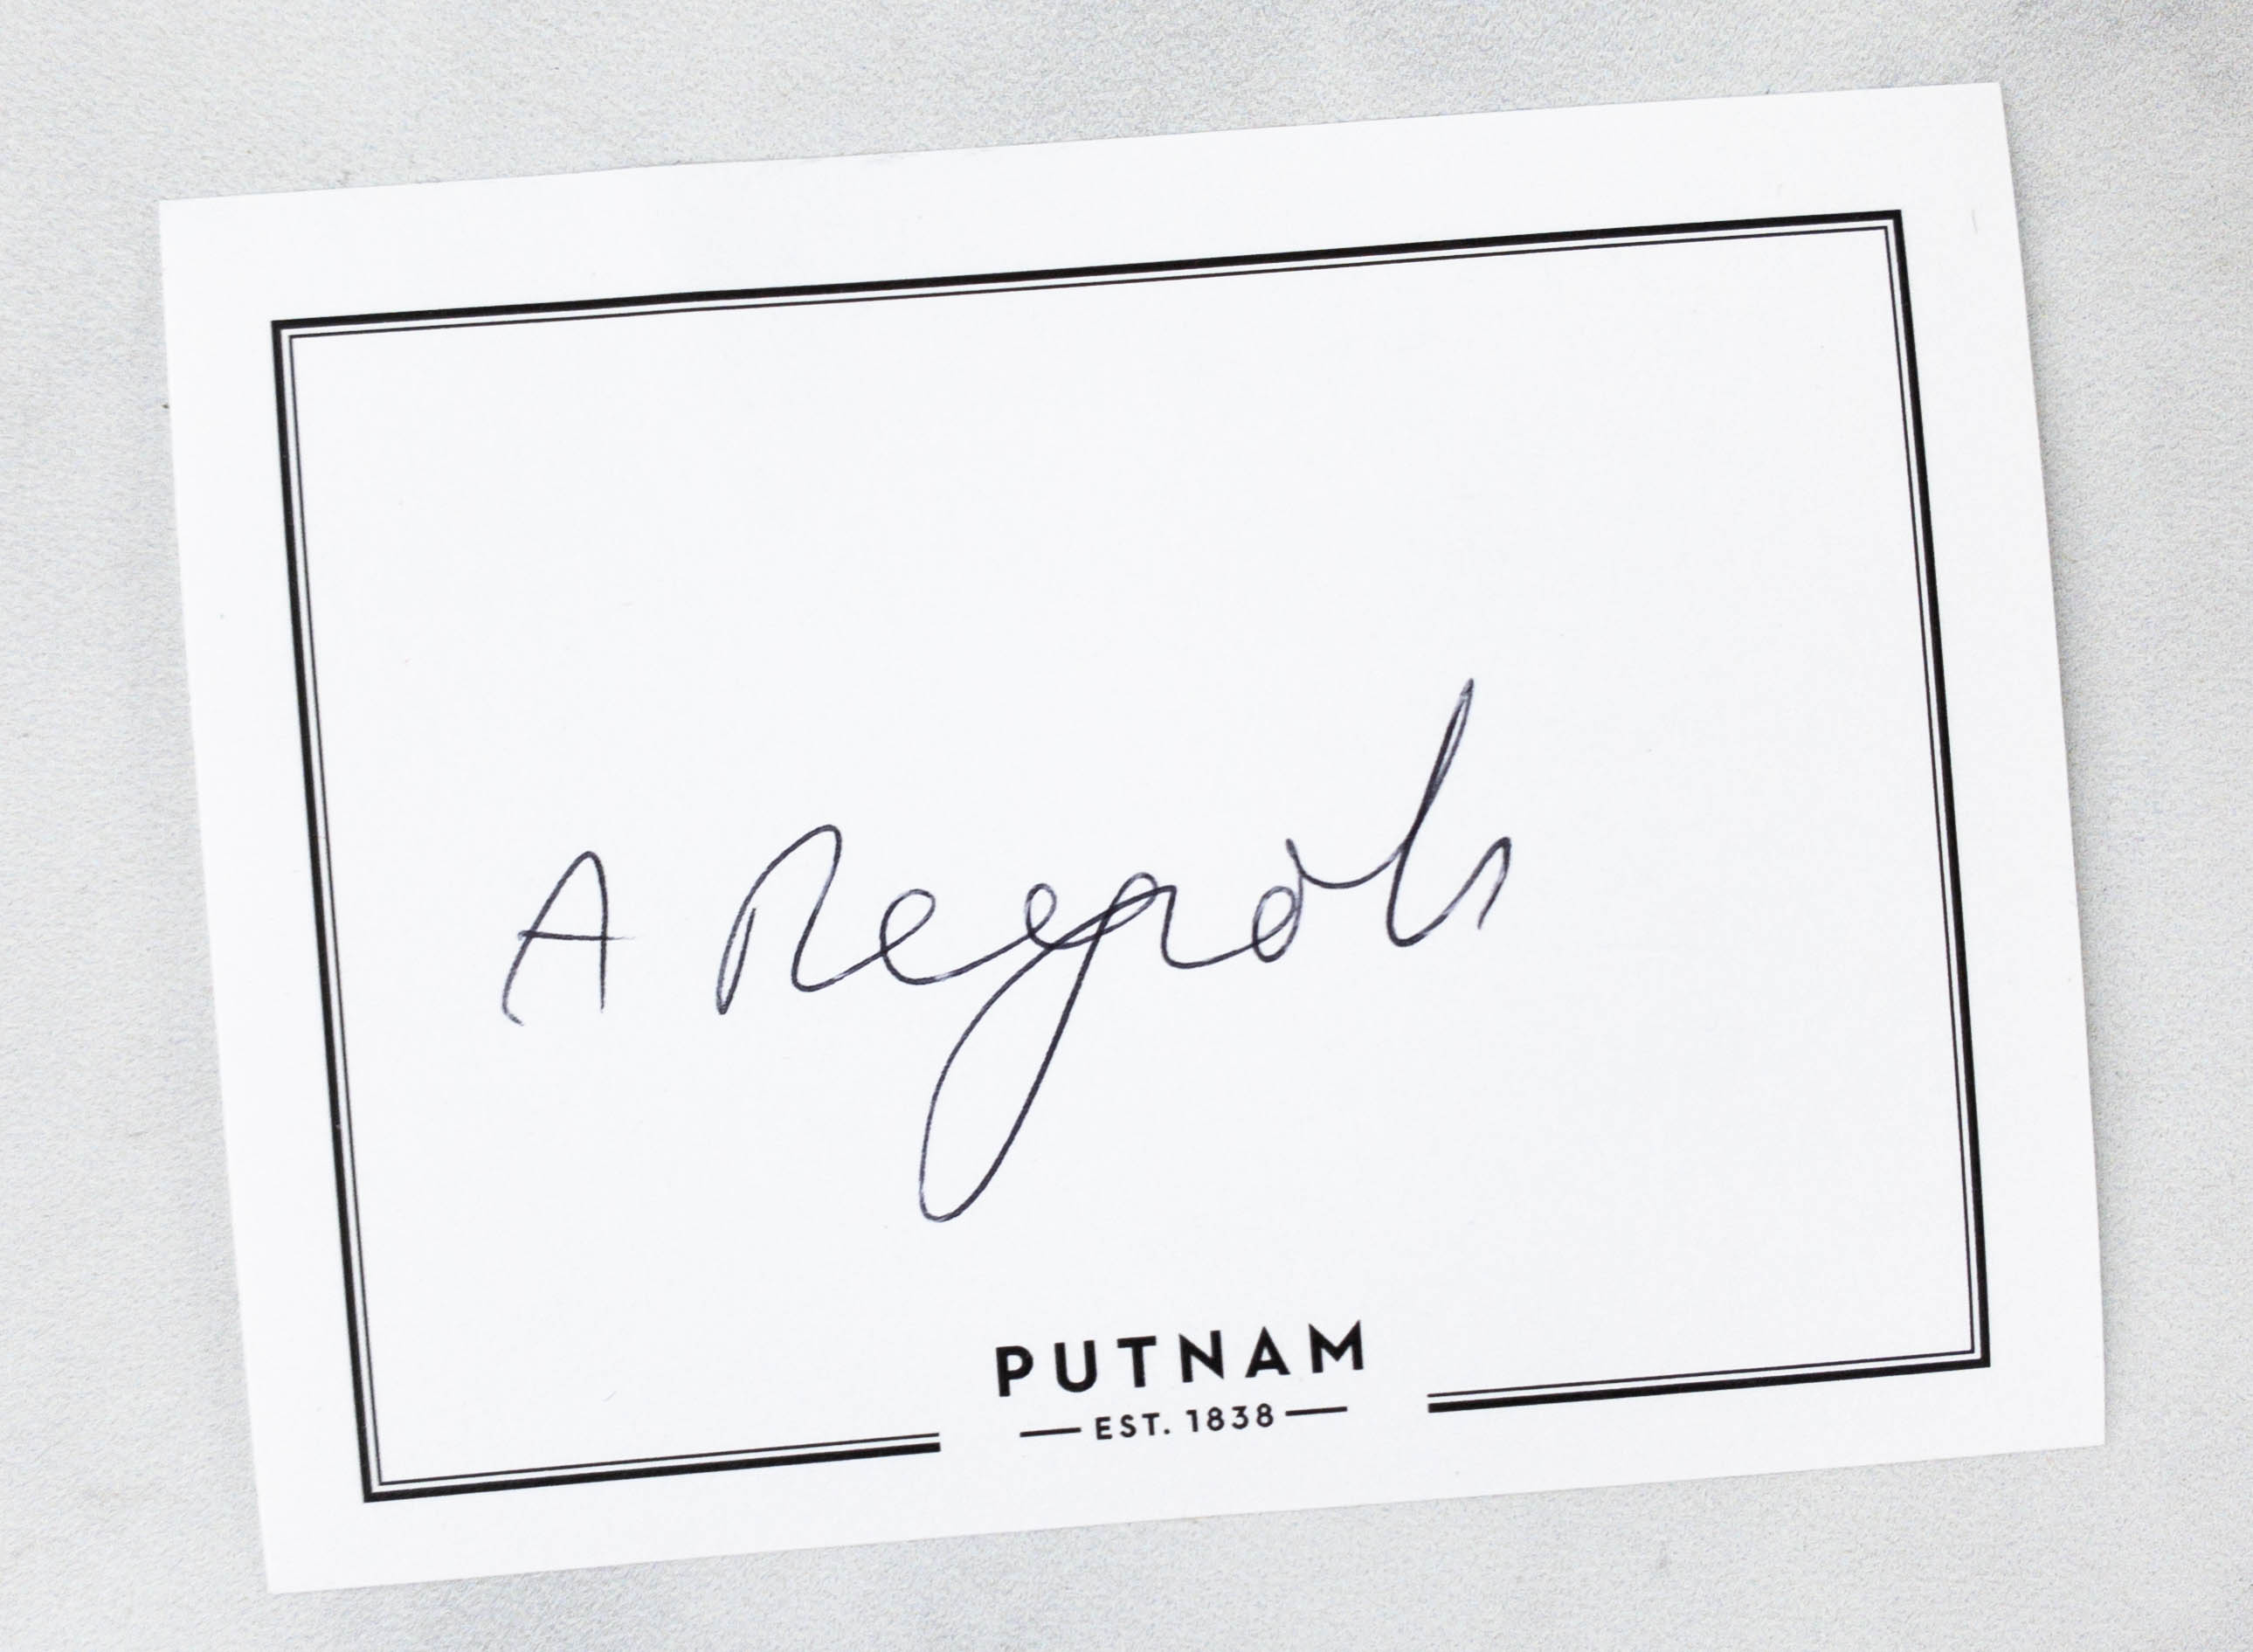 A Reynolds
PUTNAM
EST. 1838